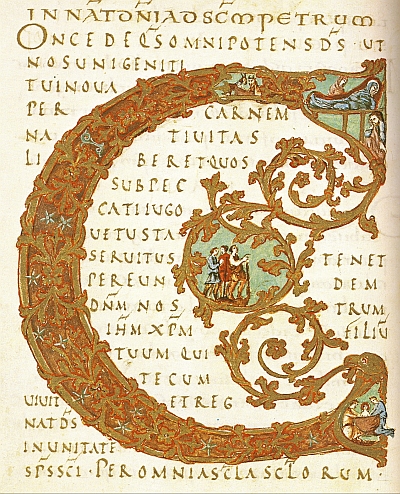 IN NAT DNI AD SCM PETRUM
CONCEDE QS OMNIPOTENS DS UT
NOS UNIGENITI
TUI NOUA
PER CARNEM
NA TIUITAS
LI BERET QUOS
SUB PEC
CATI IUGO
UETUSTA
SERUITUS TENET
PER EUN DEM
DNM NOS TRUM
IHM XPM FILIU
TUUM QUI
TECUM
UIUIT ET REG
NAT DS
IN UNITATE
SPS SCI · PER OMNIA SCLA SCLORUM ·